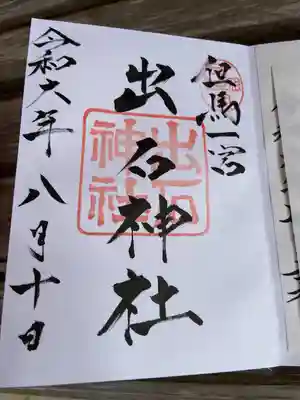 但馬一宮
出石神社
出石神社
令和六年八月十日